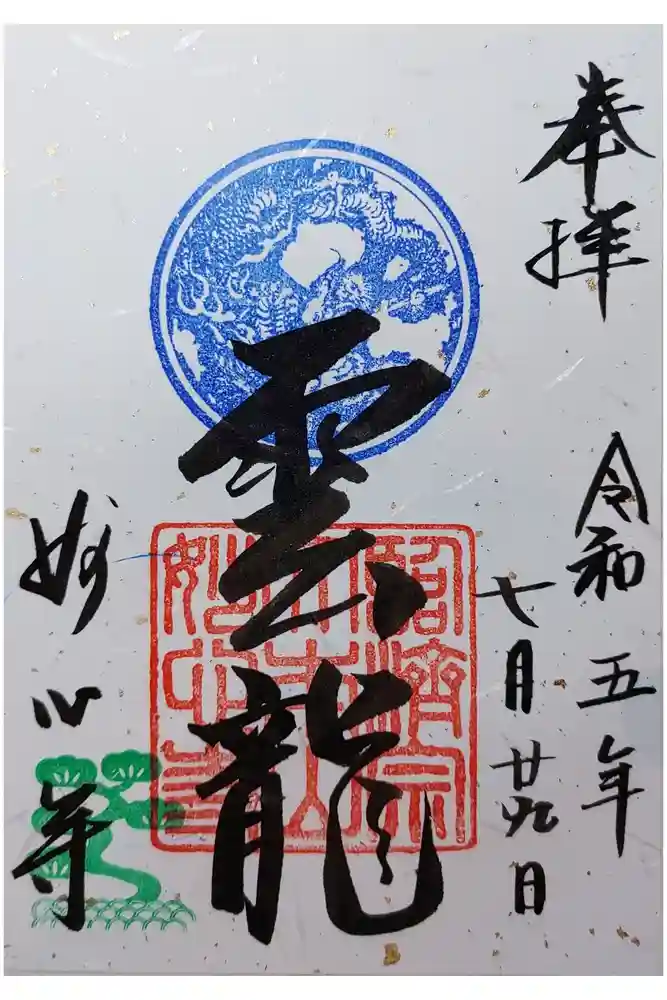 奉拝
令和五年
七月廿九日
雲龍
臨濟宗
大本山
妙心寺
妙心寺